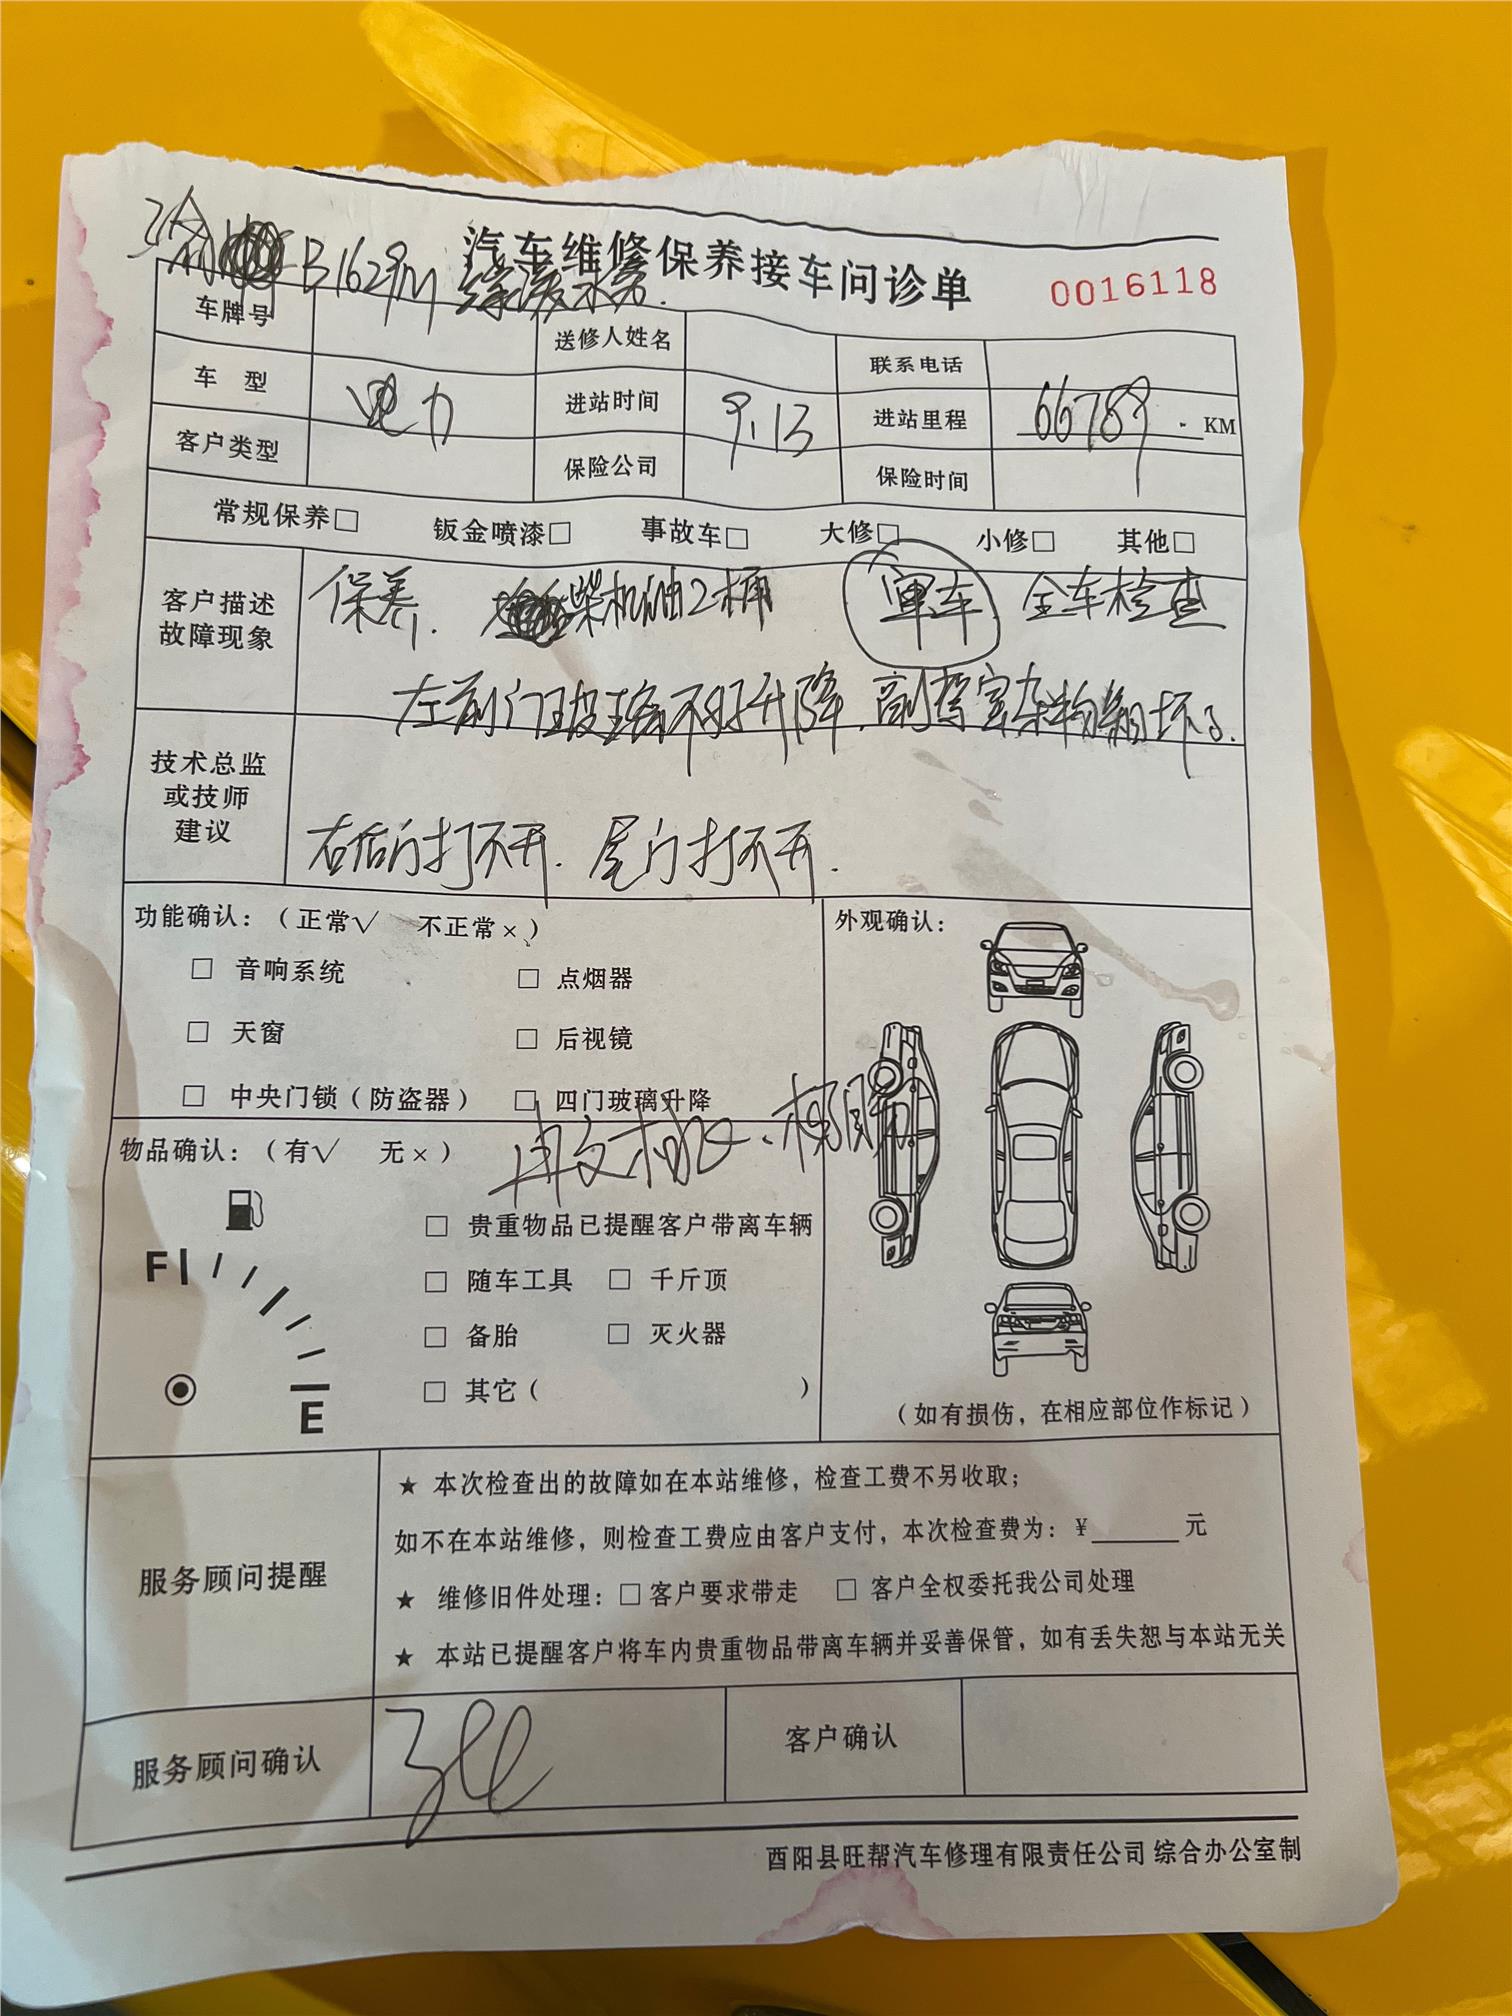 汽车维修保养接车问诊单
0016118
渝 B1629M
车牌号 送修人姓名 联系电话
车 型 电力 进站时间 9.13 进站里程 66789 KM
客户类型 保险公司 保险时间
常规保养□ 钣金喷漆□ 事故车□ 大修□ 小修□ 其他□
客户描述
故障现象
保养. 柴机油2桶 单车 全车检查
左前门玻璃不好升降.副驾室杂物箱坏了.
技术总监
或技师
建议
右后门打不开. 尾门打不开.
功能确认:(正常√ 不正常×)
□ 音响系统 □ 点烟器
□ 天窗 □ 后视镜
□ 中央门锁(防盗器) □ 四门玻璃升降
外观确认:
(如有损伤,在相应部位作标记)
物品确认:(有√ 无×)
F
E
□ 贵重物品已提醒客户带离车辆
□ 随车工具 □ 千斤顶
□ 备胎 □ 灭火器
□ 其它( )
服务顾问提醒
★ 本次检查出的故障如在本站维修,检查工费不另收取;
如不在本站维修,则检查工费应由客户支付,本次检查费为:¥______元
★ 维修旧件处理:□客户要求带走 □ 客户全权委托我公司处理
★ 本站已提醒客户将车内贵重物品带离车辆并妥善保管,如有丢失恕与本站无关
服务顾问确认 客户确认
酉阳县旺帮汽车修理有限责任公司 综合办公室制